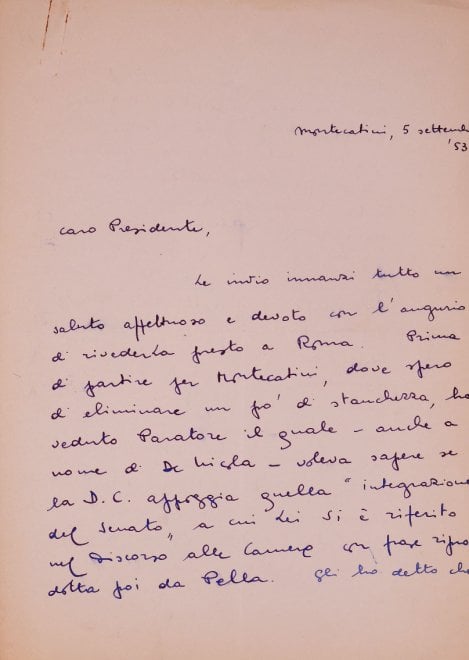 Montecatini, 5 settemb
'53
caro Presidente,
Le invio innanzi tutto un
saluto affettuoso e devoto con l'augurio
di rivederLa presto a Roma. Prima
di partire per Montecatini, dove spero
di eliminare un po' di stanchezza, ho
veduto Paratore il quale - anche a
nome di De Nicola - voleva sapere se
la D.C. appoggia quella "integrazione
del Senato", a cui Lei si è riferito
nel discorso alle Camere con frase ripro
dotta poi da Pella. Gli ho detto che